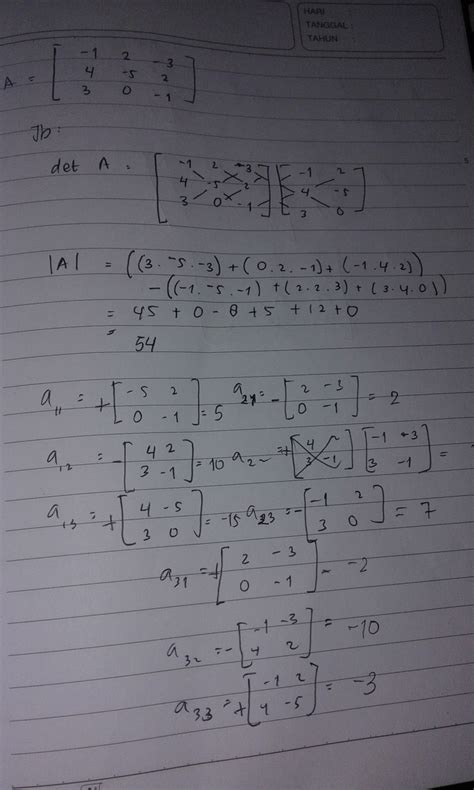 HARI
TANGGAL :
TAHUN :
A = [ -1 2 -3
4 -5 2
3 0 -1 ]
Jb:
det A = [ -1 2 -3 ] [ -1 2 ]
[ 4 -5 2 ] [ 4 -5 ]
[ 3 0 -1 ] [ 3 0 ]
|A| = ((3 . -5 . -3) + (0 . 2 . -1) + (-1 . 4 . 2))
- ((-1 . -5 . -1) + (2 . 2 . 3) + (3 . 4 . 0))
= 45 + 0 - 8 + 5 + 12 + 0
= 54
a11 = + [ -5 2
0 -1 ] = 5
a21 = - [ 2 -3
0 -1 ] = 2
a12 = - [ 4 2
3 -1 ] = 10
a2 = + [ -1 -3
3 -1 ] =
a13 = + [ 4 -5
3 0 ] = -15
a23 = - [ -1 2
3 0 ] = 7
a31 = + [ 2 -3
0 -1 ] = -2
a32 = - [ -1 -3
4 2 ] = -10
a33 = + [ -1 2
4 -5 ] = -3